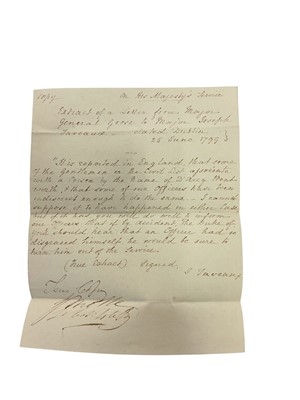 Copy. On His Majesty's Service
Extract of a Letter from Major
General Goss to Major Joseph
Taveaud dated Dublin
25 June 1799
"It is reported in England, that some
of the Gentlemen on the Civil List associate
with a Person by the name of
& that some of our Officers have been
indiscreet enough to do the same. I cannot
suppose it to have happened in
but if it had you will do well to inform
our Officers that if by accident, the Duke of
York should hear that an Officer had so
disgraced himself he would be sure to
turn him out of the Service.
(True Extract) Signed,
J.
True Copy